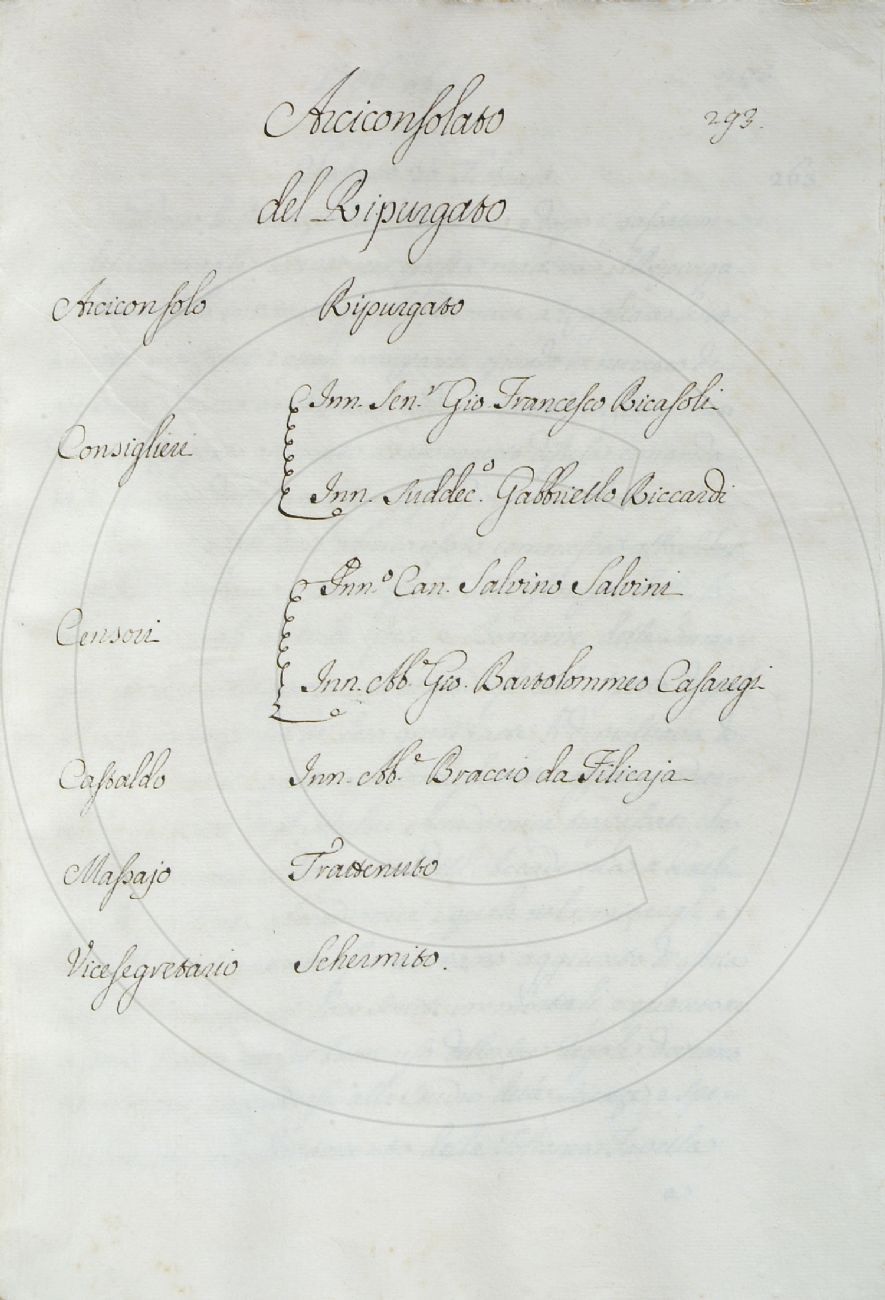 Arciconsolato
293.
del Ripurgato
Arciconsolo Ripurgato
Consiglieri
Inn. Sen.r Gio Francesco Ricasoli
Inn. Suddec.o Gabbriello Riccardi
Censori
Inn.o Can. Salvino Salvini
Inn. Ab.e Gio. Bartolommeo Casaregi
Castaldo Inn. Ab.e Braccio da Filicaja
Massajo Trattenuto
Vicesegretario Schermito.